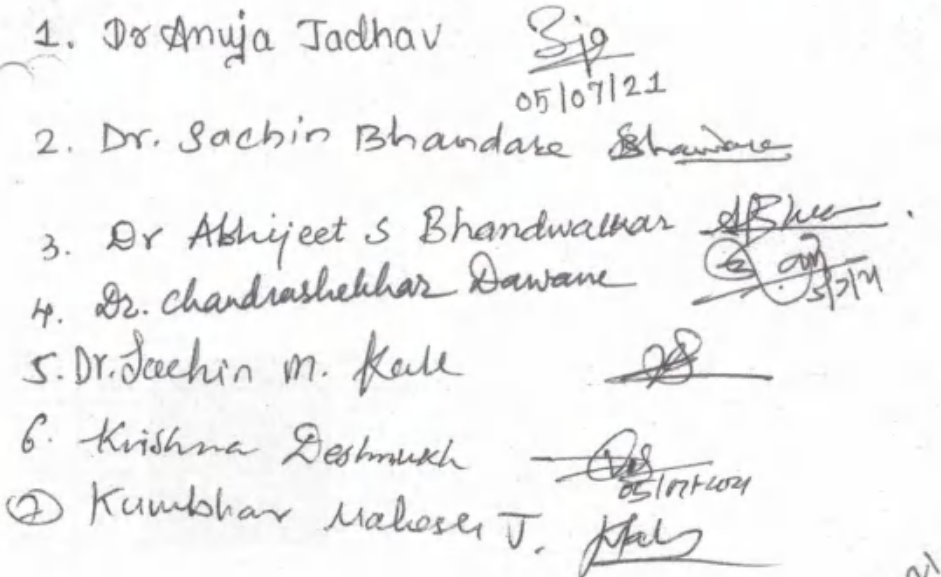 1. Dr Anuja Jadhav
05/07/21
2. Dr. Sachin Bhandare Bhandare
3. Dr Abhijeet S Bhandwalkar
4. Dr. Chandrashekhar Dawane 5/7/21
5. Dr. Sachin M. Kale
6. Krishna Deshmukh
05/07/2021
7 Kumbhar Mahesh J.